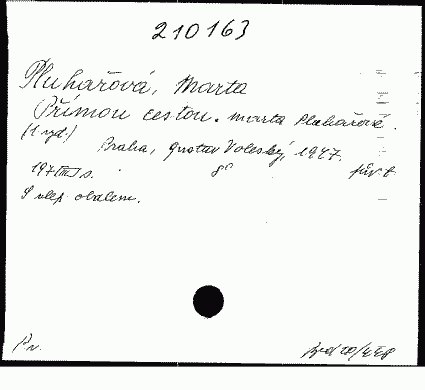 210163
Pluhařová, Marta
Přímou cestou. Marta Pluhařová.
(1. vyd.)
Praha, Gustav Voleský, 1947.
197 s. 8°
S vlep. obalem.